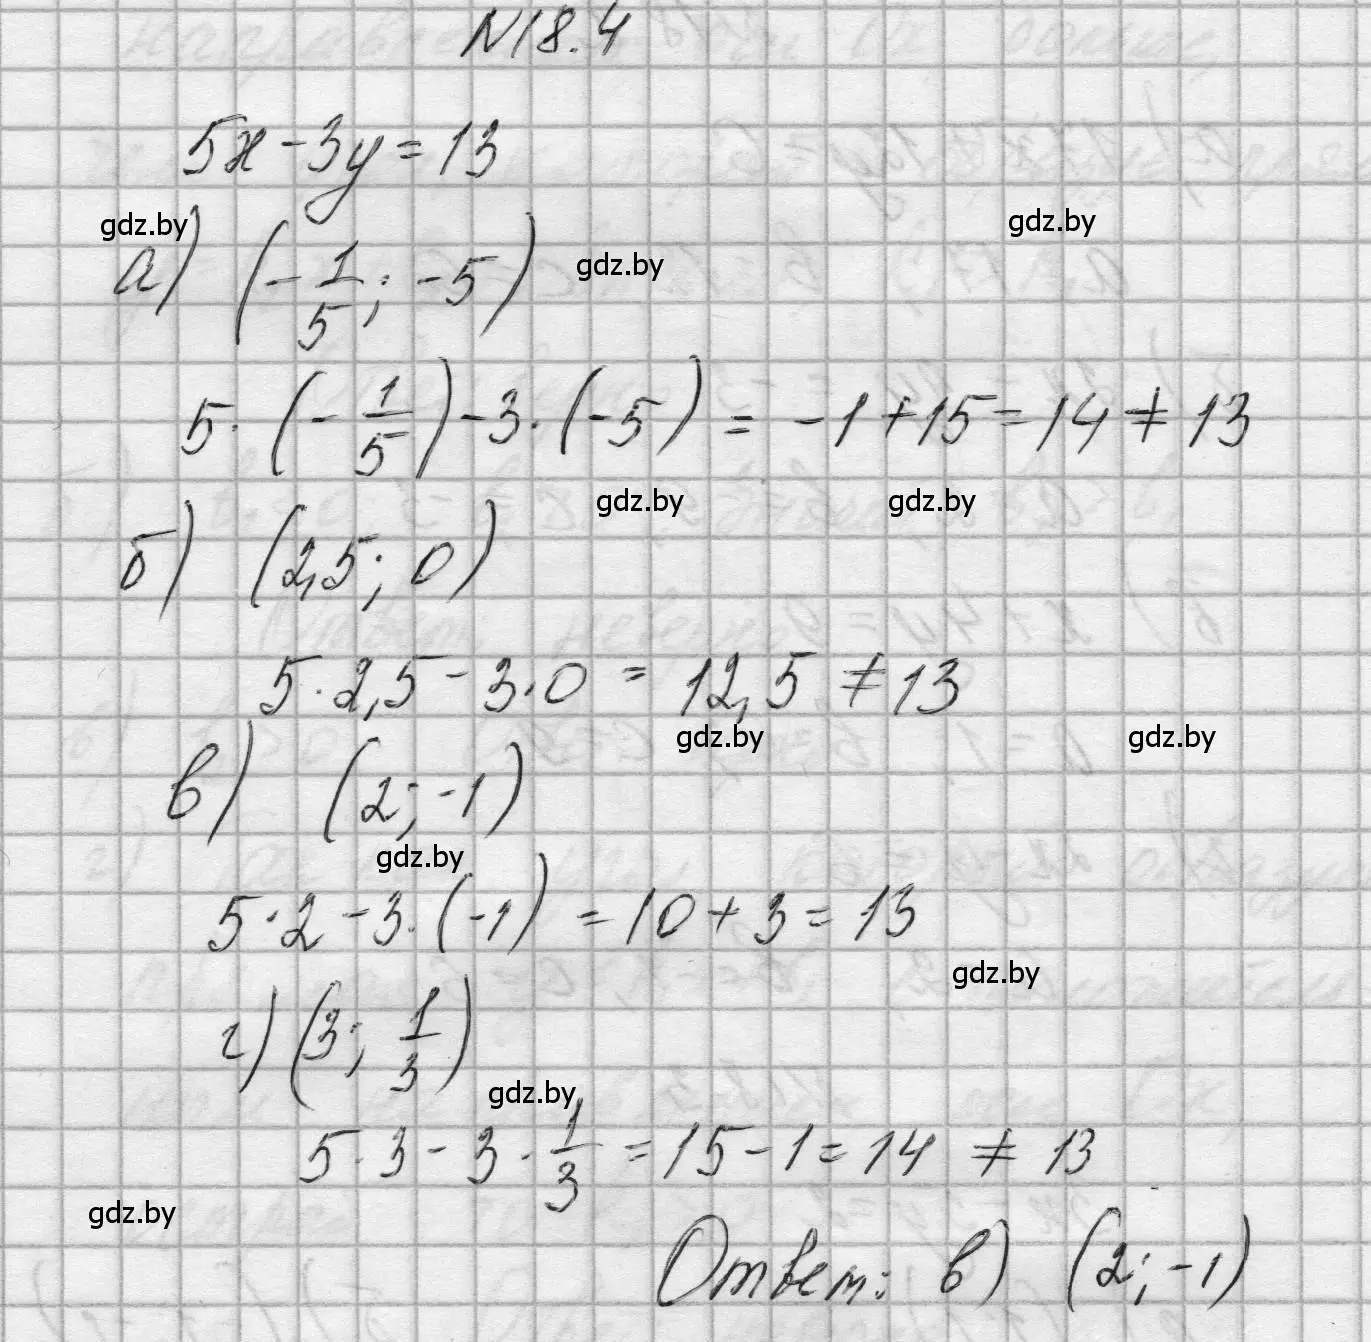 N18.4
5x-3y=13
gdz.by
gdz.by
а) (-1/5; -5)
gdz.by
5·(-1/5)-3·(-5) = -1+15=14≠13
gdz.by gdz.by
б) (2,5; 0)
5·2,5-3·0 = 12,5 ≠13
gdz.by gdz.by
в) (2; -1)
gdz.by
5·2-3·(-1) =10+3=13
gdz.by
г) (3; 1/3)
gdz.by
5·3-3·1/3 =15-1=14 ≠ 13
gdz.by
Ответ: в) (2; -1)